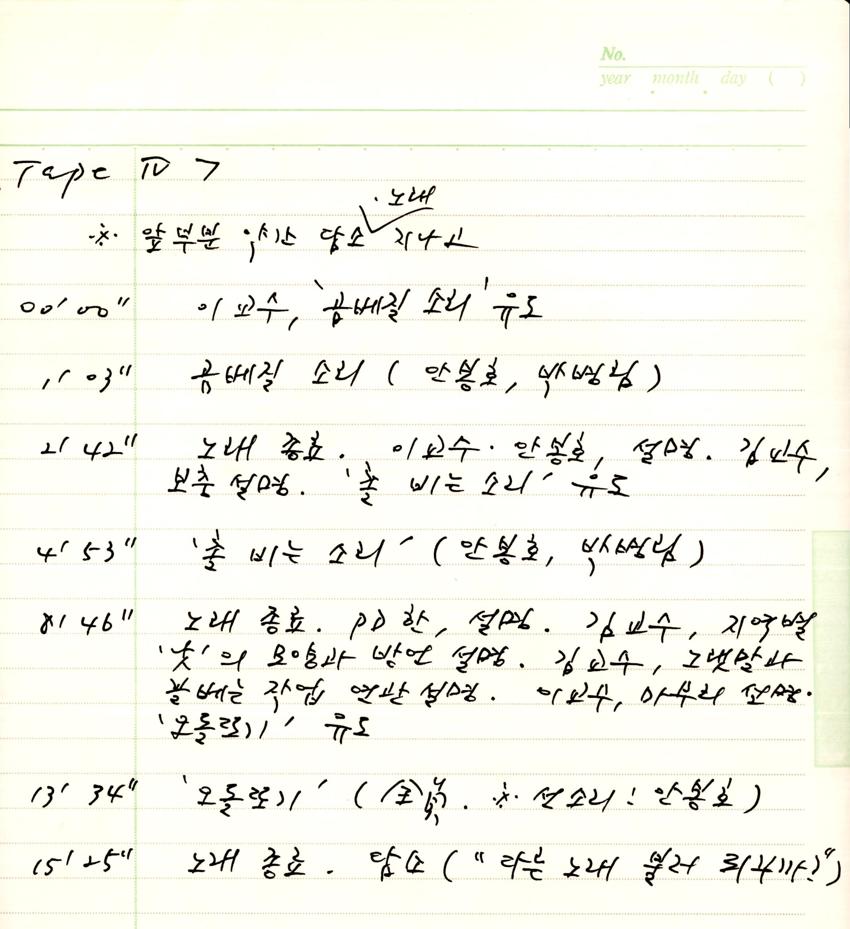 No.
year month day ( )
Tape Ⅳ >
· 노래
※ 앞부분 약간 담소 지나고
00' 00" 이교수, '곰베질 소리' 유도
1' 03" 곰베질 소리 ( 안봉호, 박병림 )
2' 42" 노래 종료. 이교수 · 안봉호, 설명. 김교수,
보충 설명. '촐 비는 소리' 유도
4' 53" '촐 비는 소리' ( 안봉호, 박병림 )
8' 46" 노래 종료. PD 한, 설명. 김교수, 지역별
'낫'의 모양과 방언 설명. 김교수, 노랫말과
꼴베는 작업 연관 설명. 이교수, 마무리 설명.
'오돌또기' 유도
13' 34" '오돌또기' ( ※ 선소리 : 안봉호 )
15' 25" 노래 종료. 담소 ( "다른 노래 불러